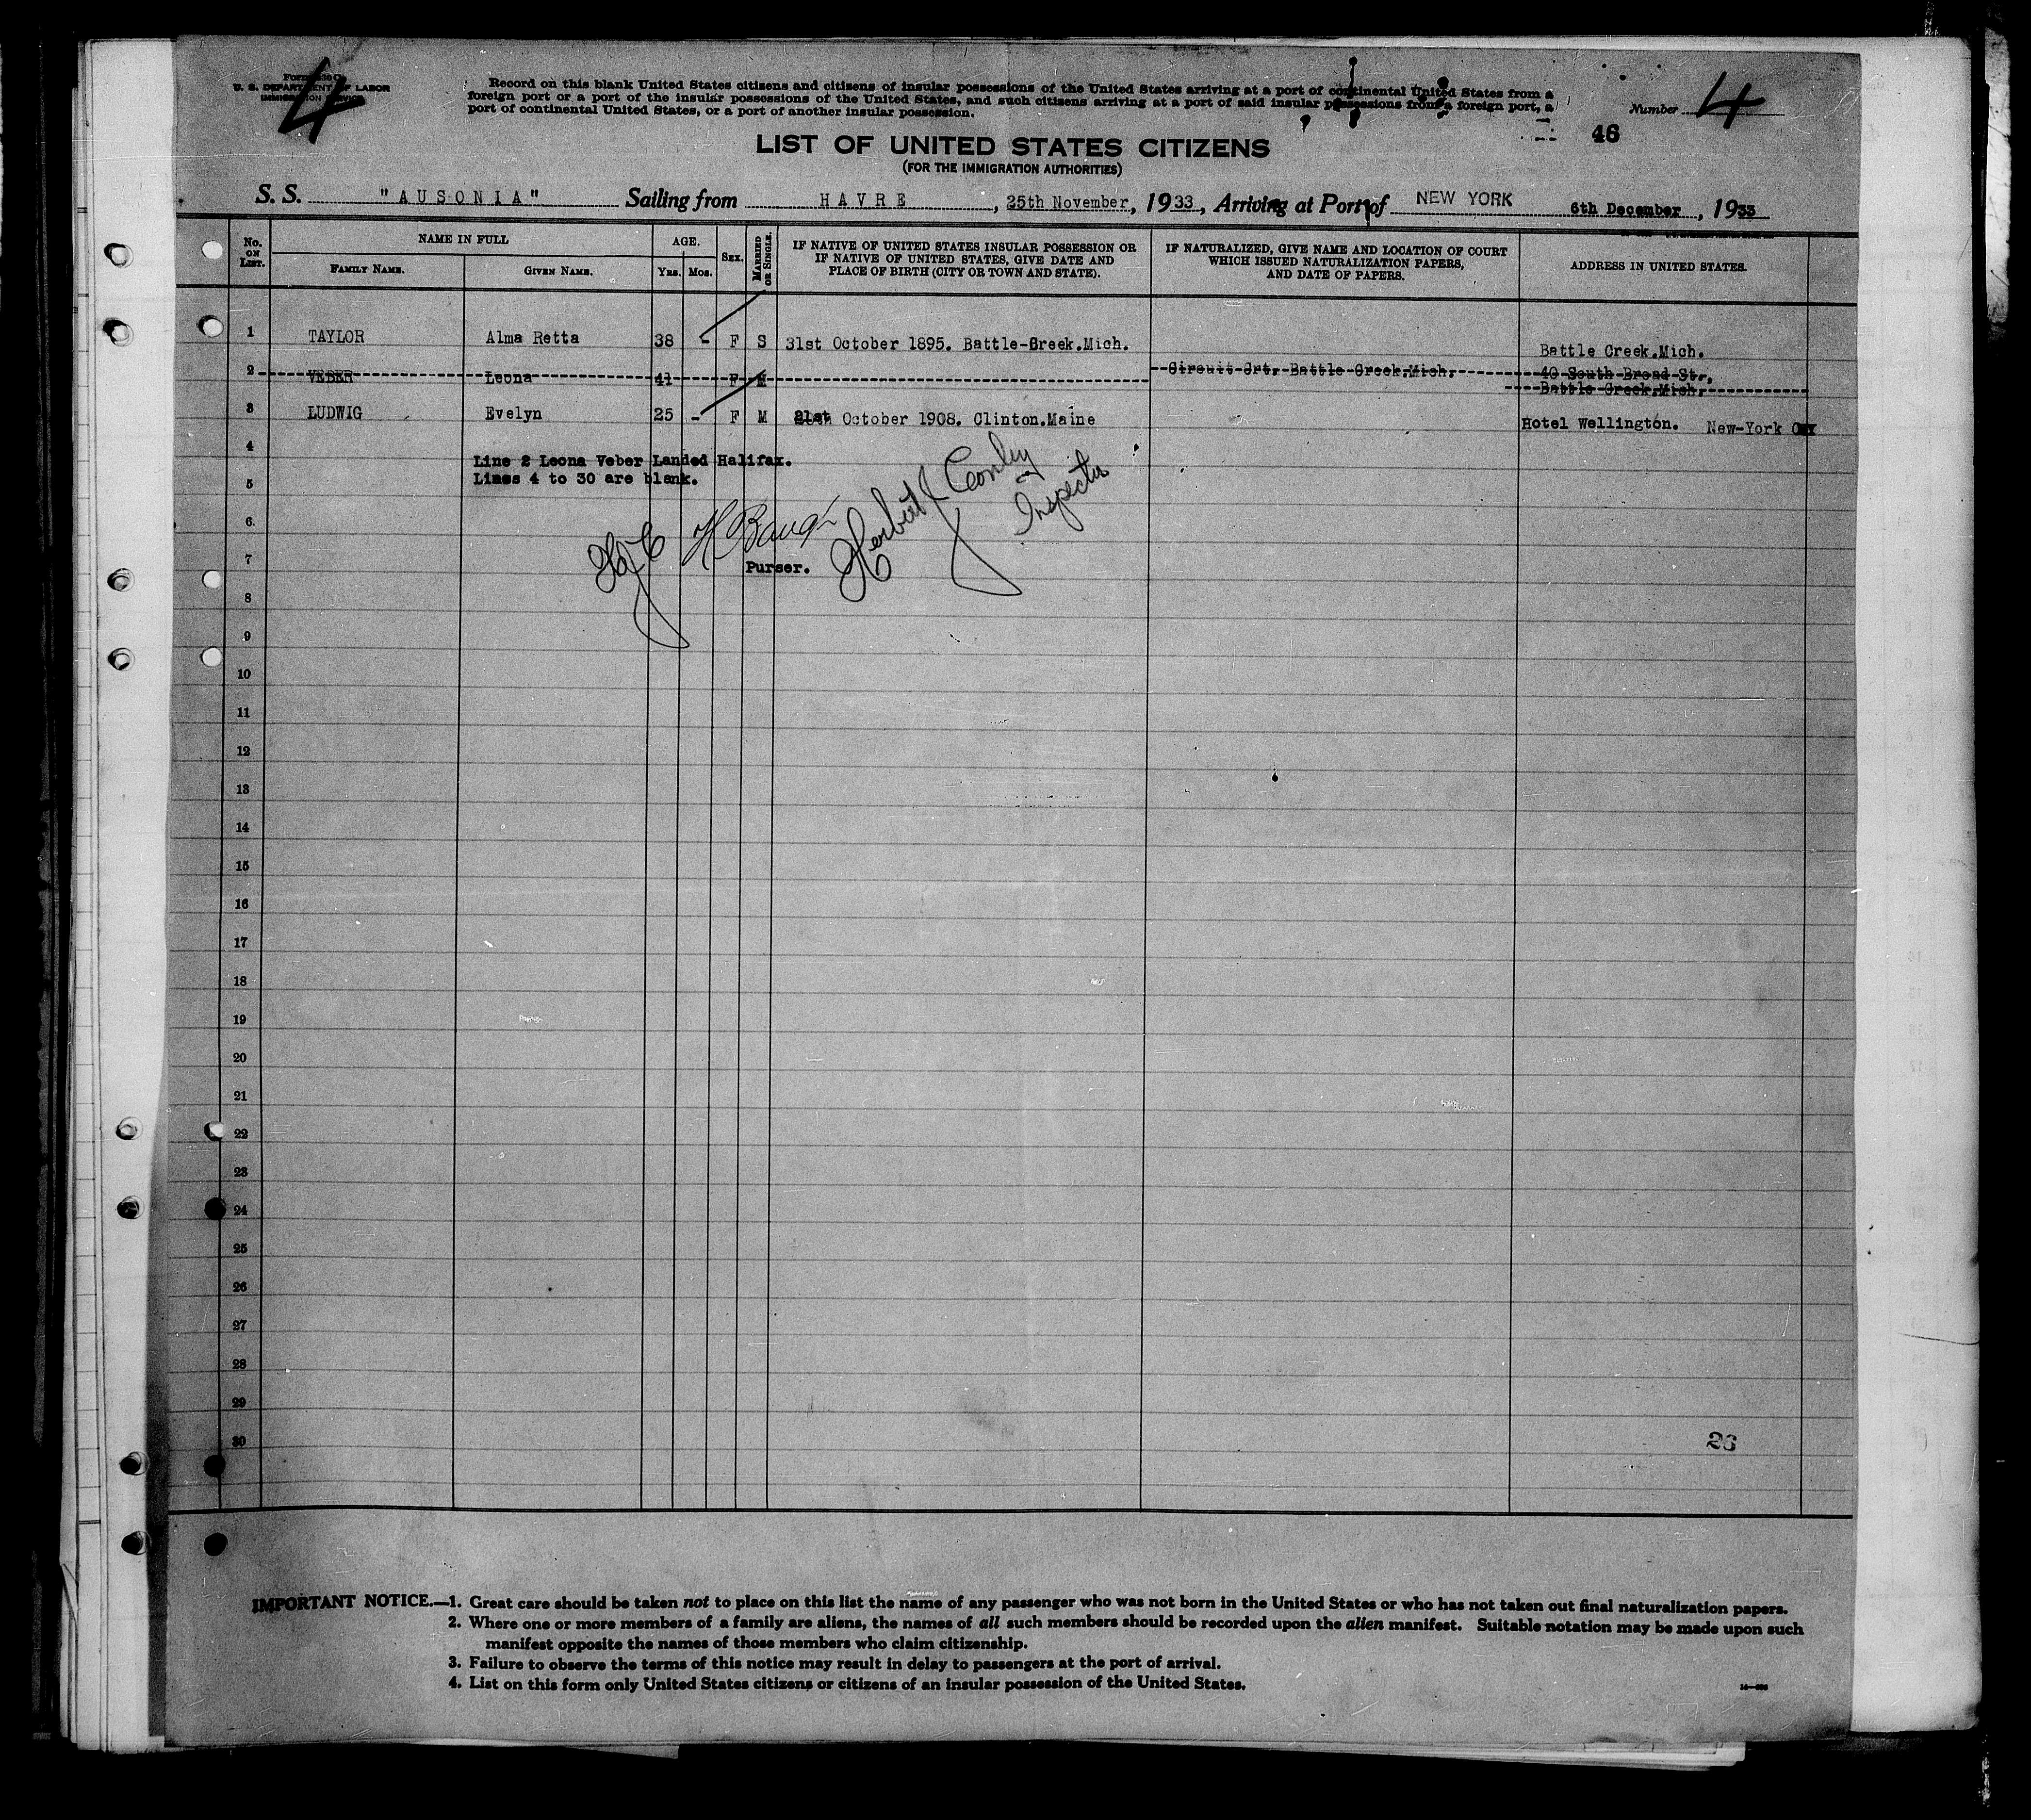 Form 630 C
U. S. DEPARTMENT OF LABOR
IMMIGRATION SERVICE
4
Record on this blank United States citizens and citizens of insular possessions of the United States arriving at a port of continental United States from a
foreign port or a port of the insular possessions of the United States, and such citizens arriving at a port of said insular possessions from a foreign port, a
port of continental United States, or a port of another insular possession.
Number 4
46
LIST OF UNITED STATES CITIZENS
(FOR THE IMMIGRATION AUTHORITIES)
S. S. "AUSONIA" Sailing from HAVRE, 25th November, 1933, Arriving at Port of NEW YORK 6th December, 1933
No. ON LIST. NAME IN FULL FAMILY NAME. GIVEN NAME. AGE. Yrs. Mos. SEX. MARRIED OR SINGLE. IF NATIVE OF UNITED STATES INSULAR POSSESSION OR IF NATIVE OF UNITED STATES, GIVE DATE AND PLACE OF BIRTH (CITY OR TOWN AND STATE). IF NATURALIZED, GIVE NAME AND LOCATION OF COURT WHICH ISSUED NATURALIZATION PAPERS, AND DATE OF PAPERS. ADDRESS IN UNITED STATES.
1 TAYLOR Alma Retta 38 - F S 31st October 1895. Battle-Creek.Mich. Battle Creek.Mich.
2 VEBER Leona 41 F M Circuit Crt. Battle Creek.Mich. 40 South Broad St.,
Battle Creek.Mich.
3 LUDWIG Evelyn 25 - F M 21st October 1908. Clinton.Maine Hotel Wellington. New-York
4
Line 2 Leona Veber Landed Halifax.
5 Lines 4 to 30 are blank.
Herbert J Conley
Inspector
6
7 Purser.
8
9
10
11
12
13
14
15
16
17
18
19
20
21
22
23
24
25
26
27
28
29
30
26
IMPORTANT NOTICE.—1. Great care should be taken not to place on this list the name of any passenger who was not born in the United States or who has not taken out final naturalization papers.
2. Where one or more members of a family are aliens, the names of all such members should be recorded upon the alien manifest. Suitable notation may be made upon such
manifest opposite the names of those members who claim citizenship.
3. Failure to observe the terms of this notice may result in delay to passengers at the port of arrival.
4. List on this form only United States citizens or citizens of an insular possession of the United States.